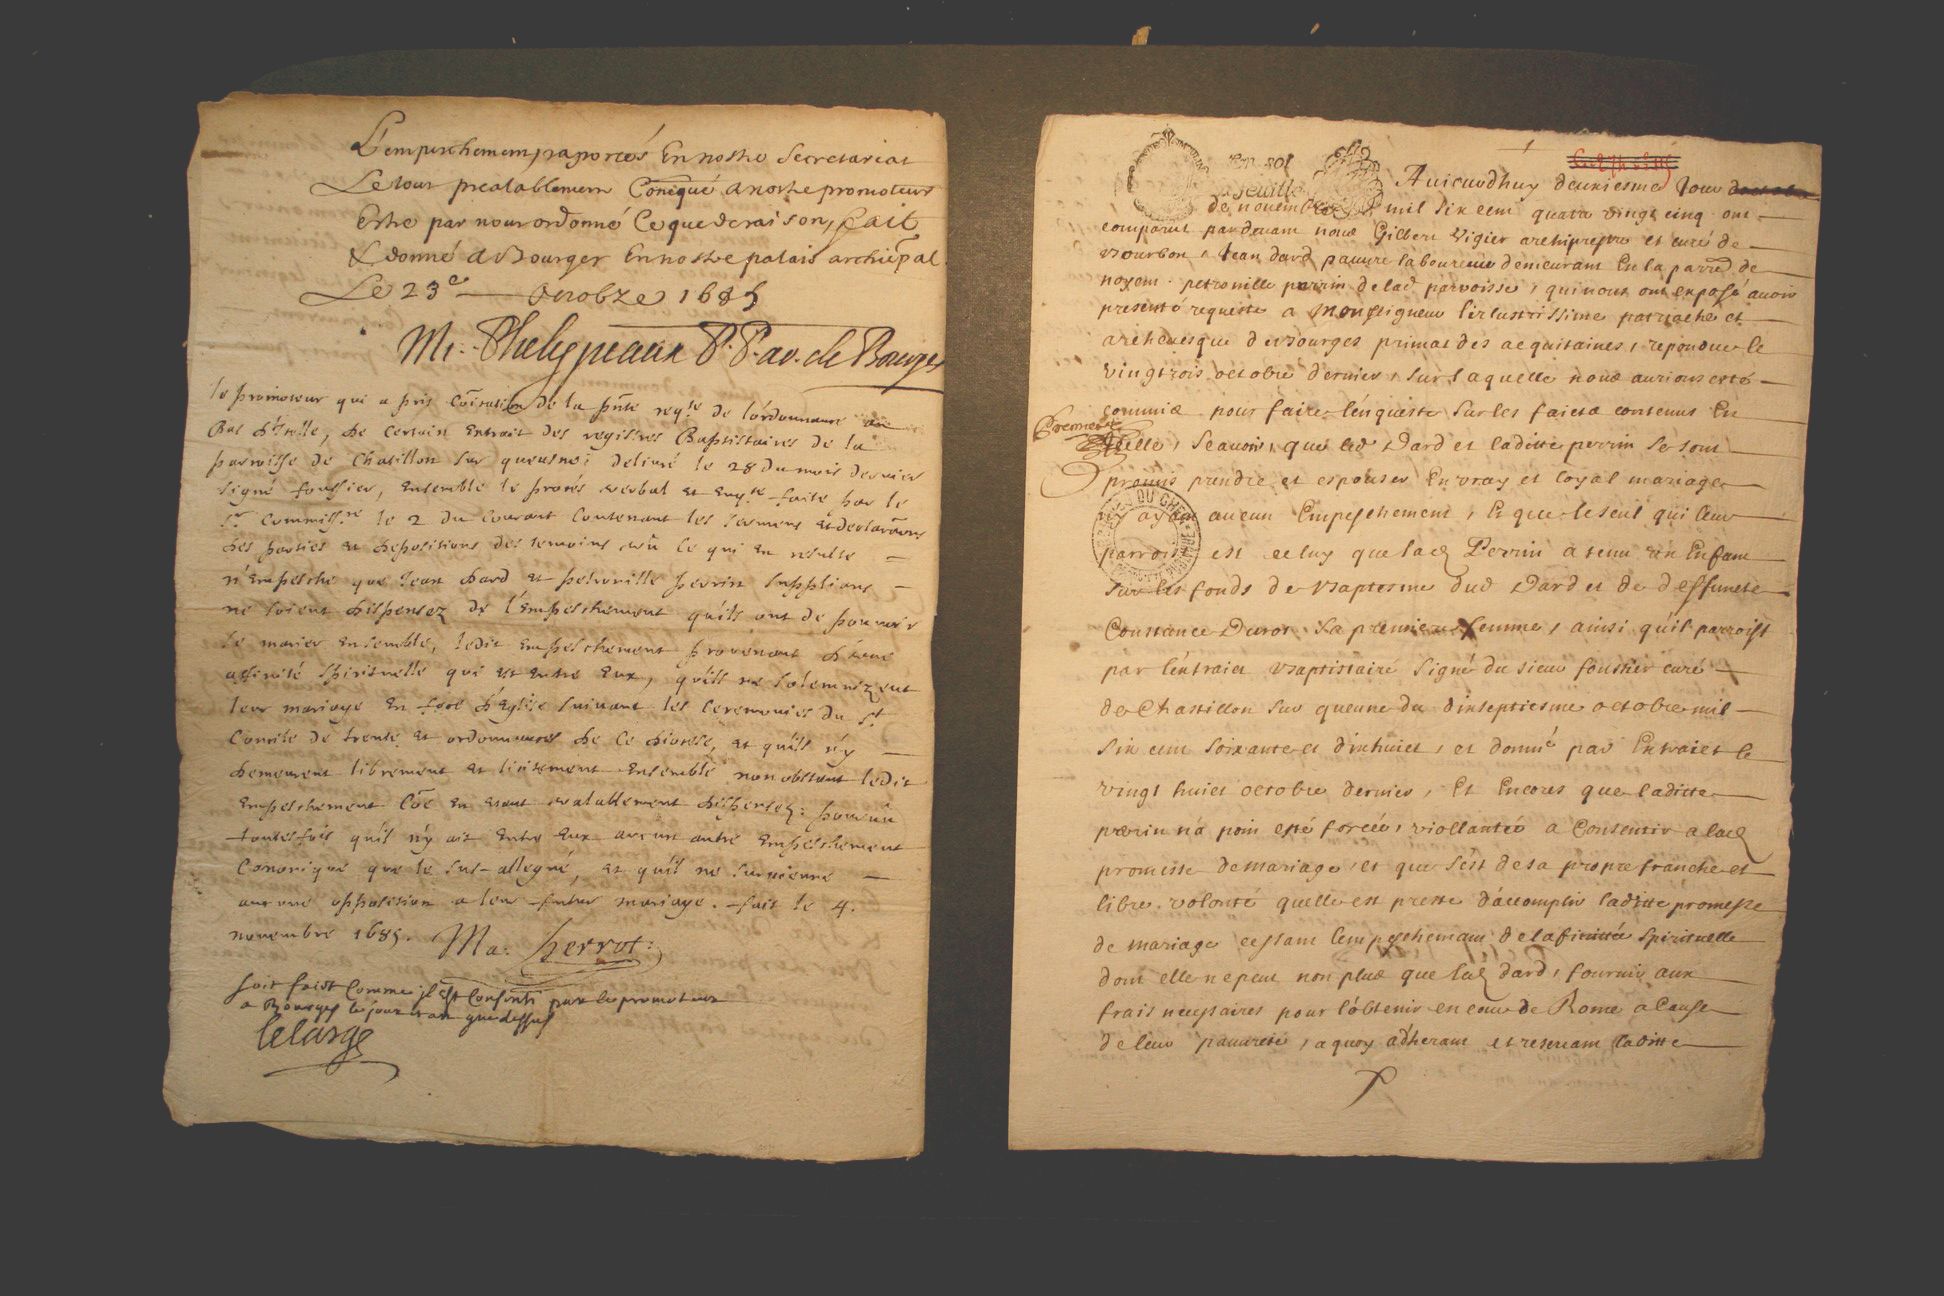 L'empeschement, raportés En nostre Secretariat
Le tout prealablement Coñiqué a nostre promoteur
Estre par nous ordonné Ce que de raison, fait
& donné a Bourges En nostre palais archiepal.
Le 23e Octobre 1685
M. Phelypeaux P. P. ar. de Bourges
le promoteur qui a pris Cõication de la pñte reqte de l'ordonnance au
Bas d'Icelle, de certain Extrait des registres Baptistaires de la
parroisse de Chatillon sur queusne; delivré le 28 du mois dernier
signé fouchier, ensemble le procés verbal et enqte faite par le
Sr Commissre le 2 du Courant Contenant les sermens et declarãons
des parties et depositions des temoins veu ce qui en resulte
n'Empesche que Jean Dard et petronille perrin supplians
ne soient dispensez de l'Empeschement qu'ils ont de pouvoir
se marier ensemble, ledit Empeschement provenant d'une
affinité spirituelle qui est entre eux, qu'ils ne solemnizent
leur mariage en face d'Eglise suivant les ceremonies du St
Concile de trente et ordonnances de ce diocese, et qu'ils n'y
demeurent librement et licitement ensemble nonobstant ledit
empeschement Cõe en étant valablement dispensez: pourvû
toutesfois qu'il n'y ait entre eux aucun autre Empeschement
Canonique que le sus-allegué, et qu'il ne survienne
aucune opposition a leur futur mariage. fait le 4.
novembre 1685. Ma: Perrot:
soit faict Comme il est Consenti par le promoteur
a Bourges le jour et an que dessus
lelarge
1
Un sol
la feuille
Aujourdhuy deuxiesme Jour
de novembre mil six cent quatre vingt cinq ont
comparut pardevant nous Gilbert Vigier archiprestre et curé de
Bourbon, Jean dard pauvre laboureur demeurant En la parred de
noyem petronille perrin de lad parroisse, qui nous ont exposé avoir
presenté requeste a Monseigneur l'illustrissime patriache et
archevesque de Bourges primat des acquitaines, repondue le
vingt trois octobre dernier, sur laquelle nous aurions esté
commis pour faire l'enqueste sur les faicts contenus En
Premiere
Icelle, Scavoir, que led Dard et laditte perrin se sont
promis prendre et espouser En vray et loyal mariage
ny ayant aucun Empeschement, Et que le seul qui leur
parroist est celuy que lad Perrin a tenu un Enfant
sur les fonds de Baptesme dud Dard et de deffuncte
Constance Duret sa premiere femme, ainsi qu'il parroist
par l'extraict Baptistaire signé du sieur fouchier curé
de Chastillon sur queune du dixseptiesme octobre mil
six cent soixante et dixhuict, et donné par Extraict le
vingt huict octobre dernier, Et Encores que laditte
perrin n'a poin esté forcée, viollantée a Consentir a lad
promesse de mariage, et que s'est de sa propre franche et
libre volonté quelle est preste d'accomplir laditte promesse
de mariage cessant l'empeschemant de lafinitée spirituelle
dont elle ne peut non plus que led dard, fournir aux
frais necessaires pour l'obtenir en cour de Rome a Cause
de leur pauvreté, a quoy adherant et recevant laditte